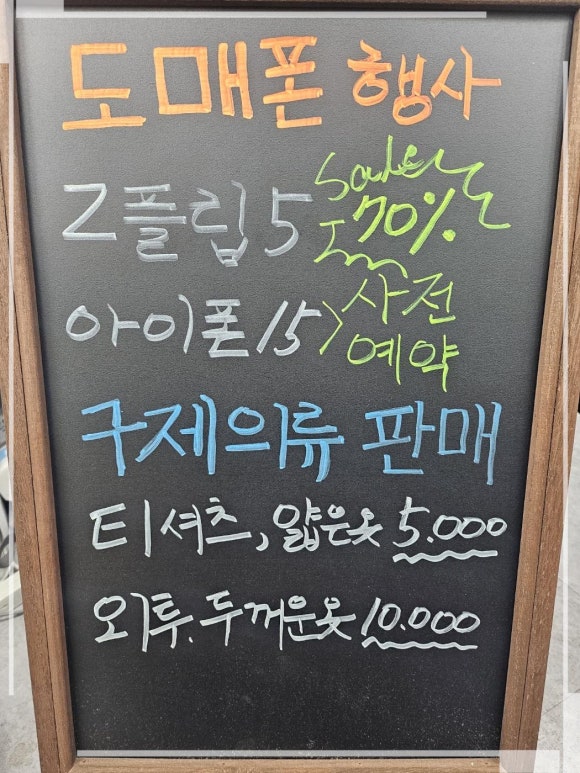 도매폰 행사
Z플립5 Sale 70%
아이폰15 > 사전
예약
구제의류 판매
티셔츠, 얇은옷 5.000
외투. 두꺼운옷 10.000